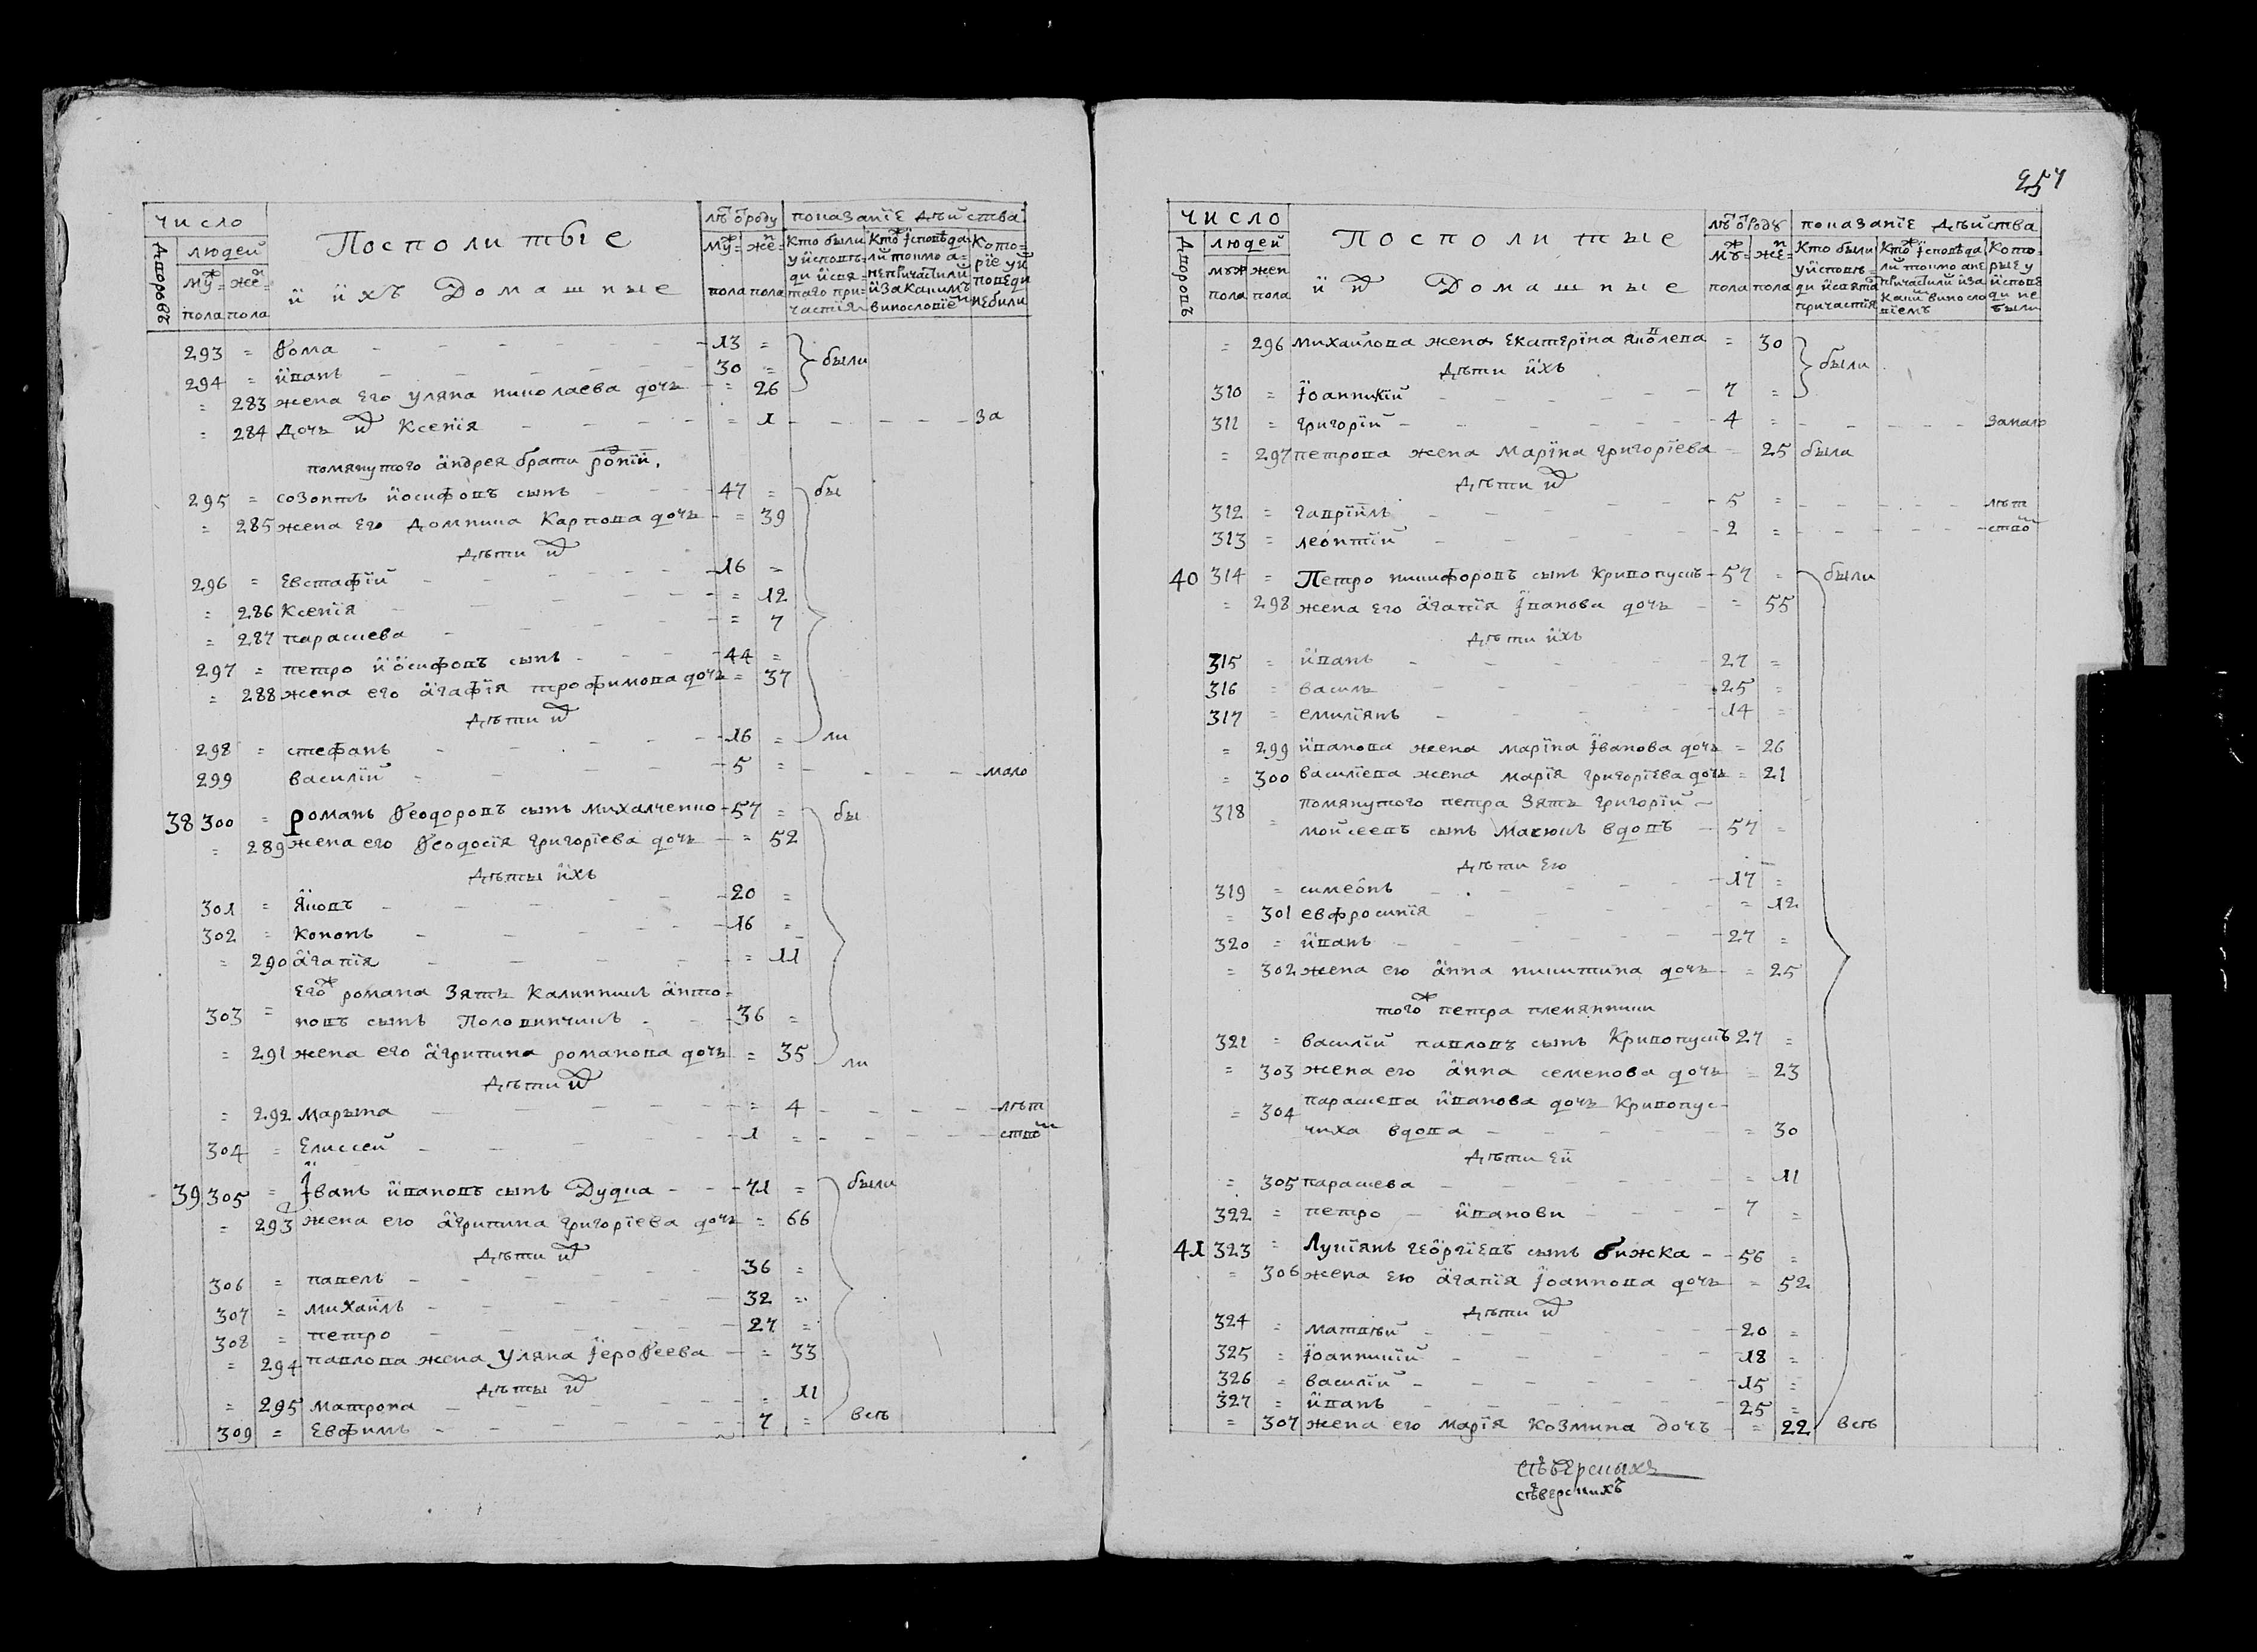 число
Посполитые
лѣтъ ѿ роду
показанїе дѣйства
Дворовъ
людей
муж= жен=
пола пола
и ихъ Домашные
муж= жен=
пола пола
Кто были у исповѣди и святаго причастїя
Кто исповѣдали толко а не причастили и за какимъ винословїем
Которїе у исповеди не били
293 = Ѳома - 13 = были
294 = иванъ - 30 =
= 283 жена его уляна николаева дочь - = 26
= 284 Дочь их Ксенїя - = 1 - за
помянутого андрея брати родній.
295 = созонтъ иосифовъ сынъ - 47 = бы
= 285 жена его Домника Карпова дочь - = 39
Дѣти их
296 = Евстафїй - 16 =
= 286 Ксенїя - = 12
= 287 параскева - = 7
297 = петро иосифовъ сынъ - 44 =
= 288 жена его агафїя трофимова дочь = 37
Дѣти их
298 = стефанъ - 16 = ли
299 василїй - 5 = - мало
38 300 = романъ Ѳеодоровъ сынъ михалченко - 57 = бы
= 289 жена его Ѳеодосїя григорїева дочь - = 52
Дѣты ихъ
301 = Яковъ - 20 =
302 = Кононъ - 16 =
= 290 агапїя - = 11
его ж романа Зять Калинникъ анто=
303 = новъ сынъ Половинчикъ - 36 =
= 291 жена его агрипина романова дочь = 35 ли
Дѣти их
= 292 Марына - = 4 - лѣт
304 = Елиссей - 1 = - ством
39 305 = Іванъ ивановъ сынъ Дудка - 71 = были
= 293 жена его агрипина григорїева дочь = 66
Дѣти их
306 = павелъ - 36 =
307 = михаилъ - 32 =
308 = петро - 27 =
= 294 павлова жена уляна ІероѲеева - = 33
Дѣты их
= 295 Матрона - = 11
309 = Евфимъ - 7 = всѣ
257
число
Посполитые
лѣтъ ѿ роду
показанїе дѣйства
Дворовъ
людей
муж жен
пола пола
и их Домашные
муж= жен=
пола пола
Кто были у исповѣди и святаго причастїя
Кто исповѣдали толко а не причастили и за каким винословїемъ
Которые у исповеди не были
= 296 михаилова жена Екатерїна яковлева = 30 были
Дѣти ихъ
310 = Іоанникїй - 7 =
311 = григорїй - 4 = - замало
= 297 петрова жена Марїна григорїева - 25 была
Дѣти их
312 = гаврїилъ - 5 = - лѣт
313 = леонтїй - 2 = - ством
40 314 = Петро никифоровъ сынъ Кривопускъ - 57 = были
= 298 жена его агапїя Іванова дочь - = 55
Дѣти ихъ
315 = иванъ - 27 =
316 = василь - 25 =
317 = емилїянъ - 14 =
= 299 иванова жена марїна Іванова дочь = 26
= 300 василїева жена марїя григорїева дочь = 21
помянутого петра Зять григорїй -
318 = моисеевъ сынъ Масюкъ вдовъ - 57 =
Дѣти его
319 = симеонъ - 17 =
= 301 евфросинїя - = 12
320 = иванъ - 27 =
= 302 жена его анна никитина дочь - = 25
того ж петра племянники
321 = василїй павловъ сынъ Кривопускъ 27 =
= 303 жена его анна семенова дочь = 23
= 304 параскева иванова дочь Кривопус-
чиха вдова - = 30
Дѣти ей
= 305 параскева - = 11
322 = петро - иванови - 7 =
41 323 = Лукїянъ георгїевъ сынъ бижка - 56 =
= 306 жена его агапїя Іоаннова дочь = 52
Дѣти их
324 = матвѣй - 20 =
325 = Іоанникїй - 18 =
326 = василїй - 15 =
327 = иванъ - 25 =
= 307 жена его марїя козмина дочъ - = 22 всѣ